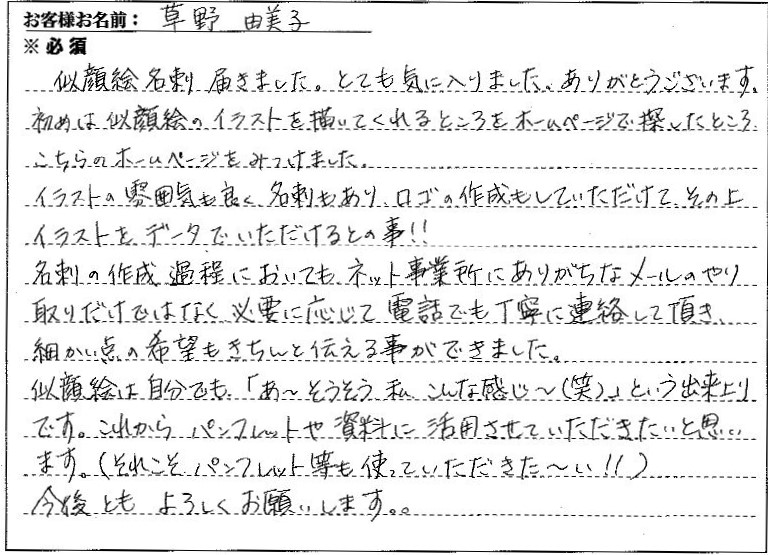 お客様お名前： 草野 由美子
※必須
似顔絵名刺届きました。とても気に入りました。ありがとうございます。
初めは似顔絵のイラストを描いてくれるところをホームページで探したところ、
こちらのホームページをみつけました。
イラストの雰囲気も良く、名刺もあり、ロゴの作成もしていただけて、その上
イラストをデータでいただけるとの事!!
名刺の作成過程においても、ネット事業所にありがちなメールのやり
取りだけではなく、必要に応じて電話でも丁寧に連絡して頂き、
細かい点の希望もきちんと伝える事ができました。
似顔絵は自分でも、「あ〜そうそう私、こんな感じ〜(笑)」という出来上り
です。これからパンフレットや資料に活用させていただきたいと思い
ます。(それこそパンフレット等も使っていただきた〜い!!)
今後ともよろしくお願いします。。